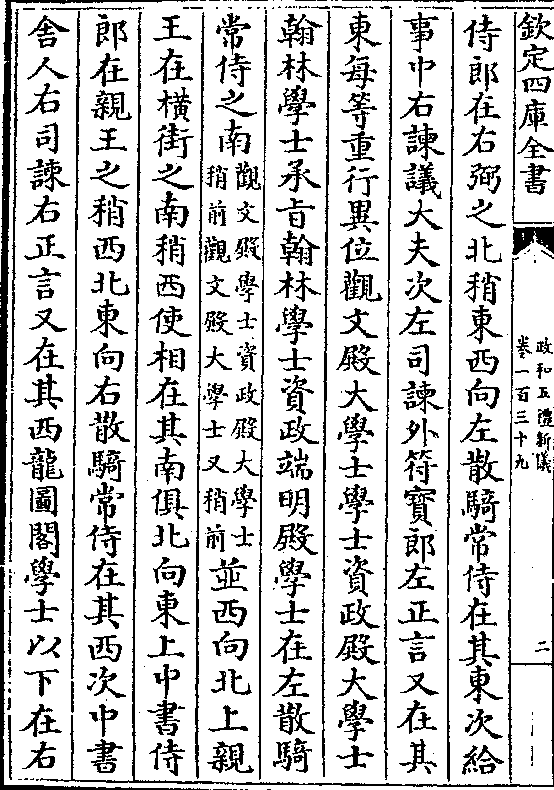 欽定四庫全書
政和五禮新儀
卷一百三十九
二
侍郎在右弼之北稍東西向左散騎常侍在其東次給
事中右諫議大夫次左司諫外符寶郎左正言又在其
東每等重行異位觀文殿大學士學士資政殿大學士
翰林學士承旨翰林學士資政端明殿學士在左散騎
常侍之南觀文殿學士資政殿大學士
稍前觀文殿大學士又稍前
並西向北上親
王在橫街之南稍西使相在其南俱北向東上中書侍
郎在親王之稍西北東向右散騎常侍在其西次中書
舍人右司諫右正言又在其西龍圖閣學士以下在右